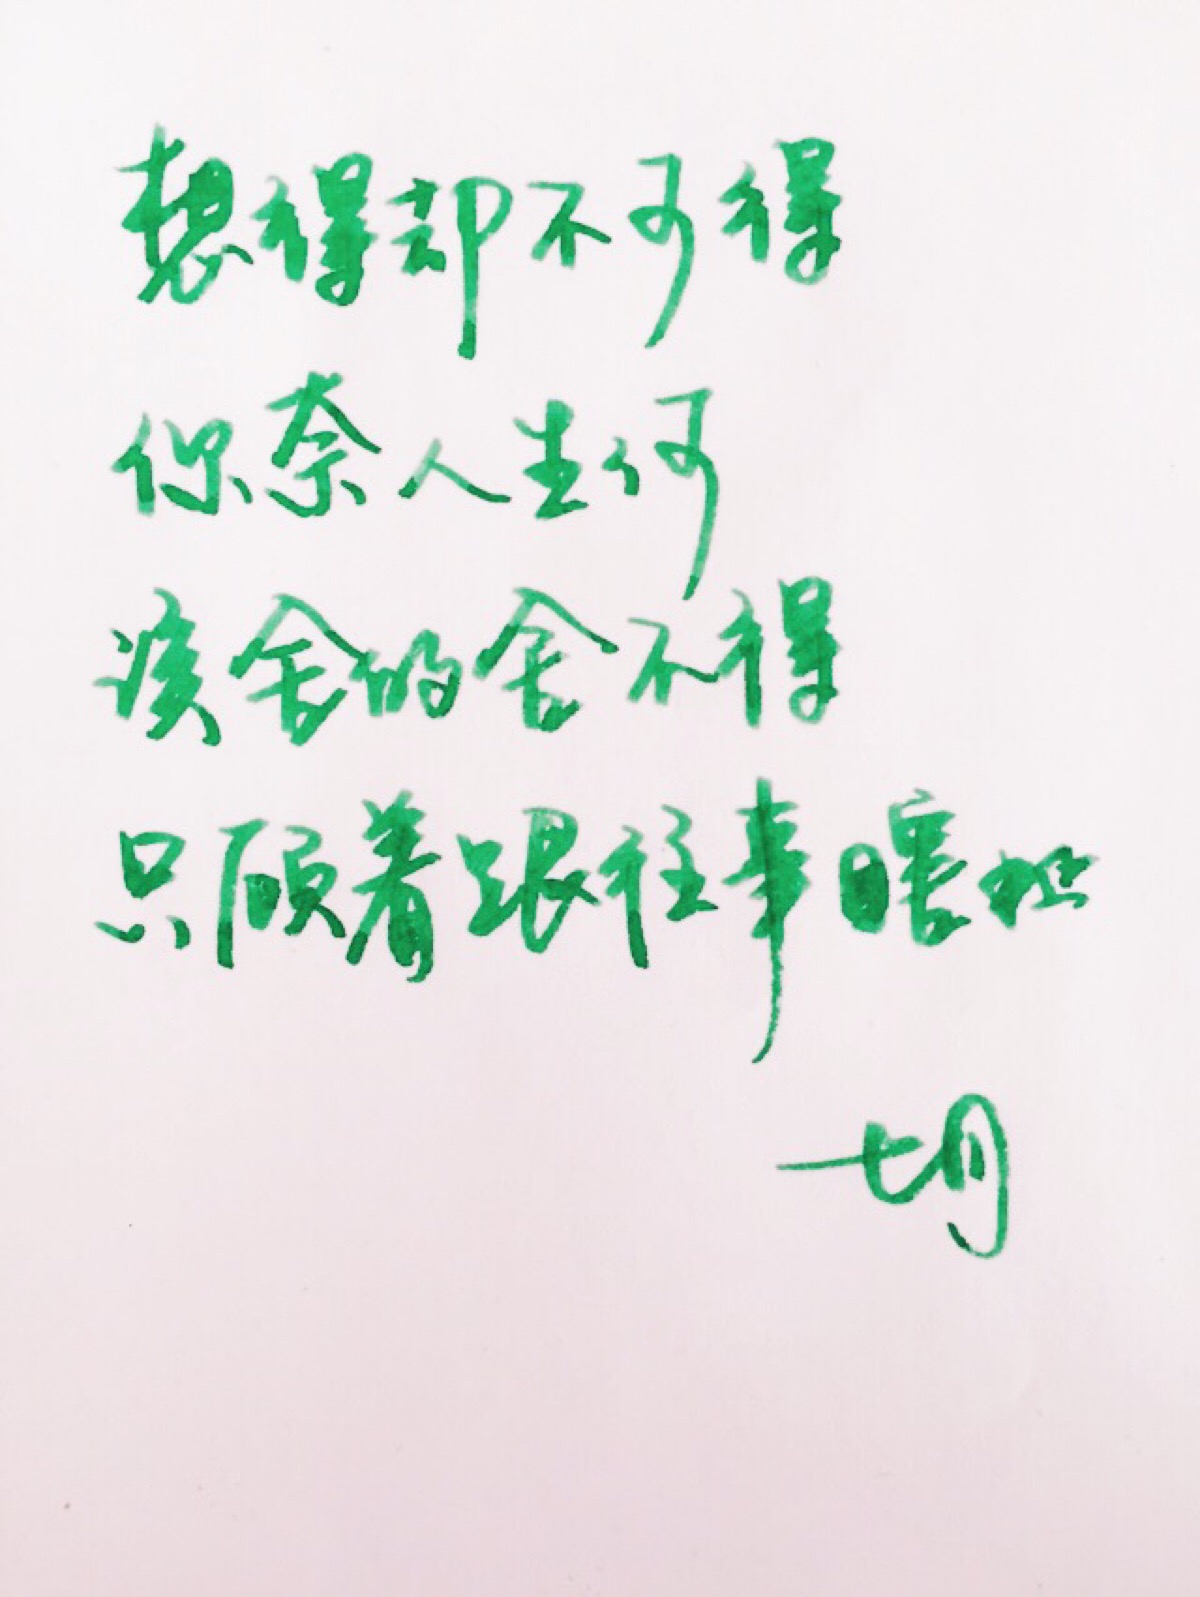 想得却不可得
你奈人生何
该舍的舍不得
只顾着跟往事瞎扯
七月